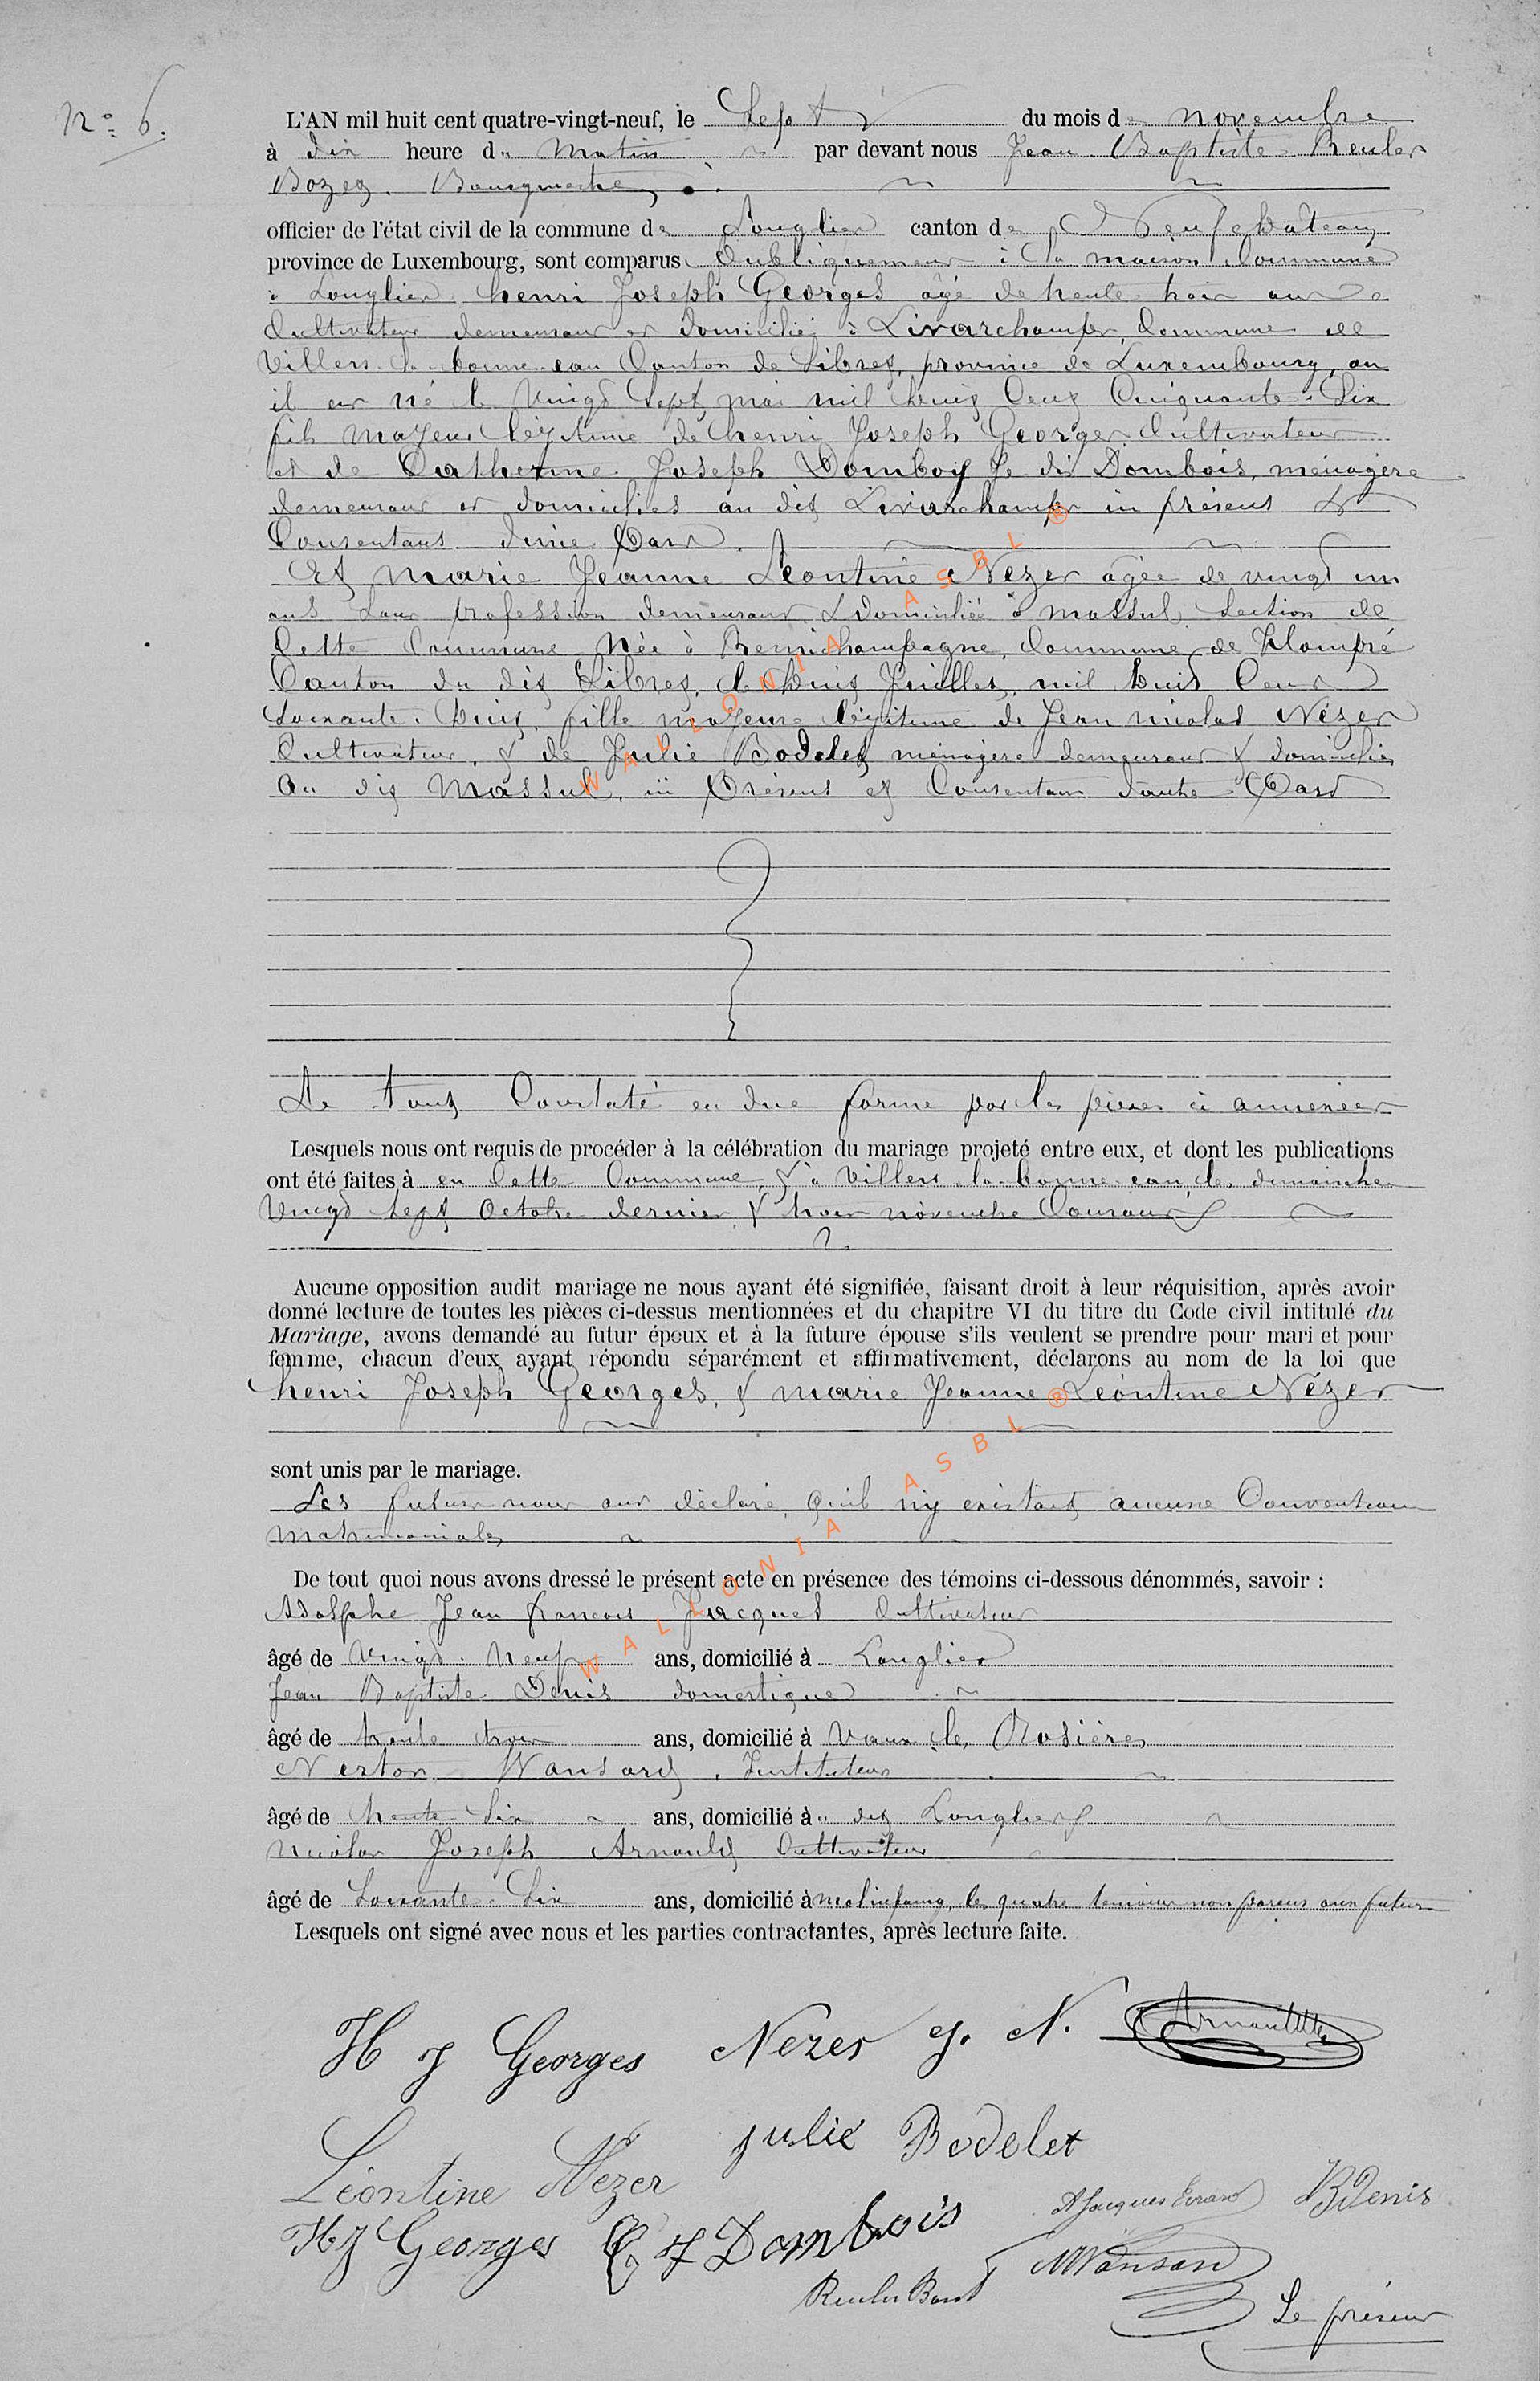 N° 6.
L'AN mil huit cent quatre-vingt-neuf, le Sept du mois de novembre
à dix heure du Matin par devant nous Jean Baptiste Reuler
Bozez. Bourgmestre,
officier de l'état civil de la commune de Longlier canton de Neufchateau
province de Luxembourg, sont comparus Publiquement à la maison Commune
à Longlier, henri Joseph Georges agé de trente trois ans
Cultivateur demeurant et domicilié à Livarchamps, Commune de
Villers la bonne eau Canton de Sibret, province de Luxembourg, ou
il est né le Vingt Sept mai mil huit Cent Cinquante Six
fils majeur légitime de henri Joseph Georges Cultivateur
et de Catherine Joseph Domboy Je dis Dombois, ménagère
demeurant et domiciliés au dit Livarchamps ici présens &
Consentant d'une Part.
Et Marie Jeanne Léontine Nézer agée de vingt un
ans Sans profession demeurant & domiciliée à Massul, Section de
Cette Commune Née à Remichampagne, Commune de Hompré
Canton du dit Sibret, le huit Juillet, mil huit Cent
Soixante huit, fille majeure légitime de Jean nicolas Nézer
Cultivateur, & de Julie Bodelet ménagère demeurant & domiciliés
Au dit Massul, ici Présens et Consentans d'autre Part
Le tout Constaté en due forme par les pièces ci annexées
Lesquels nous ont requis de procéder à la célébration du mariage projeté entre eux, et dont les publications
ont été faites à en Cette Commune, & à Villers la bonne eau, les dimanches
Vingt Sept Octobre dernier & trois novembre Courant
Aucune opposition audit mariage ne nous ayant été signifiée, faisant droit à leur réquisition, après avoir
donné lecture de toutes les pièces ci-dessus mentionnées et du chapitre VI du titre du Code civil intitulé du
Mariage, avons demandé au futur époux et à la future épouse s'ils veulent se prendre pour mari et pour
femme, chacun d'eux ayant répondu séparément et affirmativement, déclarons au nom de la loi que
henri Joseph Georges, & Marie Jeanne Léontine Nézer
sont unis par le mariage.
Les futurs nous ont déclaré, qu'il n'y existait aucune Convention
Matrimoniale,
De tout quoi nous avons dressé le présent acte en présence des témoins ci-dessous dénommés, savoir :
Adolphe Jean francois Jacques Cultivateur
âgé de Vingt Neuf ans, domicilié à Longlier
Jean Baptiste Denis domestique
âgé de trente trois ans, domicilié à Vaux lez Rosières
Nestor Wansard, Instituteur
âgé de trente Six ans, domicilié à u dit Longlier
Nicolas Joseph Arnould Cultivateur
âgé de Soixante Six ans, domicilié à molinfaing, les quatre témoins non parens aux futurs
Lesquels ont signé avec nous et les parties contractantes, après lecture faite.
H J Georges Nezer J. N. Arnould
Léontine Nézer Julie Bodelet
A Jacques JBDenis
HJ Georges C J Dombois
NWansard
WALLONIA ASBL ®
WALLONIA ASBL ®